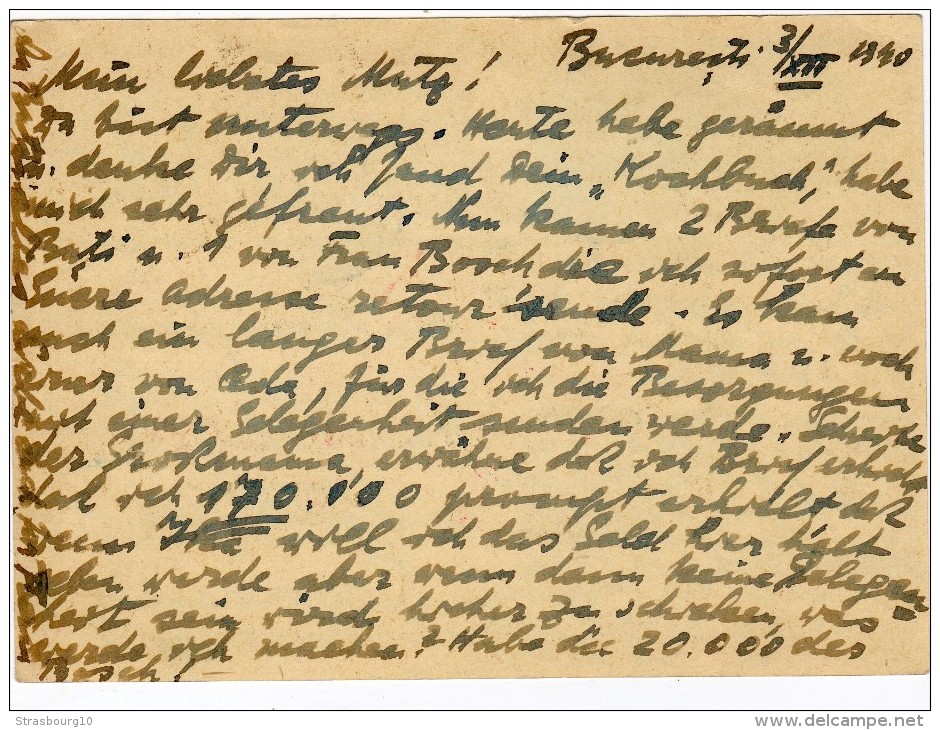 București 3/XII 1940
Mein liebstes Mutz!
Du bist unterwegs. Heute habe geräumt
u. denke Dir ich fand Dein „Kochbuch", habe
mich sehr gefreut. Nun kamen 2 Briefe von
Bați u. 1 von Frau Bosch die ich sofort an
Euere Adresse retour sende. Es kam
auch ein langer Brief von Mama u. noch
einer von Edi, für die ich die Besorgungen
mit einer Gelegenheit senden werde. Schreibe
der Großmama, erwähne daß ich Brief erhielt
daß ich 170.000 prompt erhielt daß
wenn will ich das Geld hier halt
geben werde aber wenn dann keine Gelegen=
heit sein wird hieher zu schicken, was
werde ich machen? Habe die 20.000 des
Besch.
Strasbourg10
delcampe.net